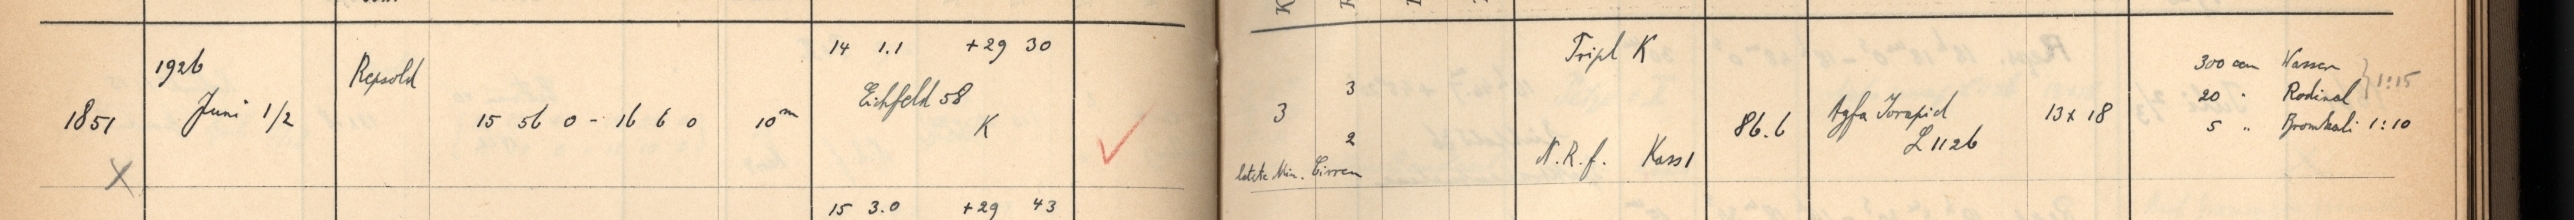 14 1.1 +29 30
Tripl K
1926
Repsold
300 ccm Wasser
1:15
Eichfeld 58
3
20 " Rodinal
1851 Juni 1/2 15 56 0 - 16 6 0 10m
K
3
86.6
Agfa Isorapid 13x18
5 " Bromkali 1:10
L 1126
2
N.R.f. Kass 1
X
letzte Min. Cirren
15 3.0 +29 43